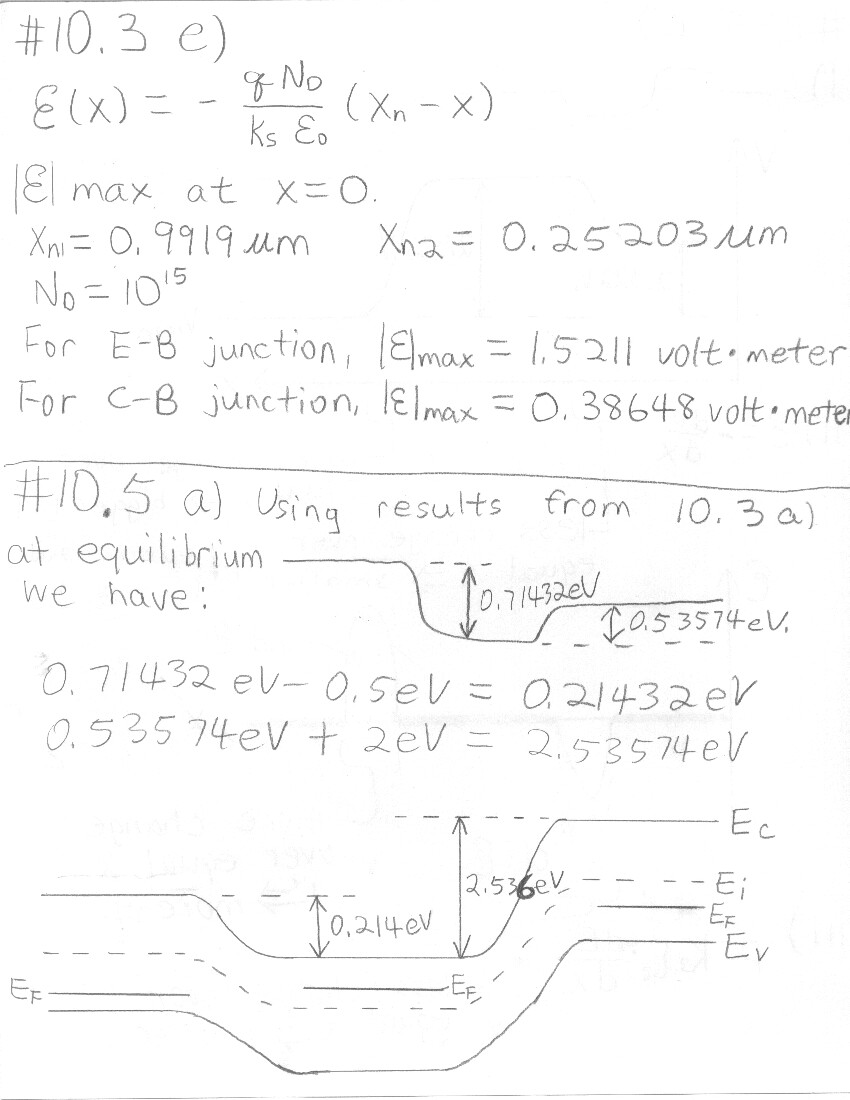 #10.3 e)
ℰ(x) = - q N_D / k_s ε_0 (x_n - x)
|ℰ| max at x=0.
x_n1 = 0.9919 μm x_n2 = 0.25203 μm
N_D = 10^15
For E-B junction, |ℰ|max = 1.5211 volt•meter
For C-B junction, |ℰ|max = 0.38648 volt•meter
#10.5 a) Using results from 10.3 a)
at equilibrium
we have:
0.71432eV
0.53574eV.
0.71432 eV - 0.5eV = 0.21432eV
0.53574eV + 2eV = 2.53574eV
E_C
2.536eV
E_i
E_F
0.214eV
E_V
E_F
E_F